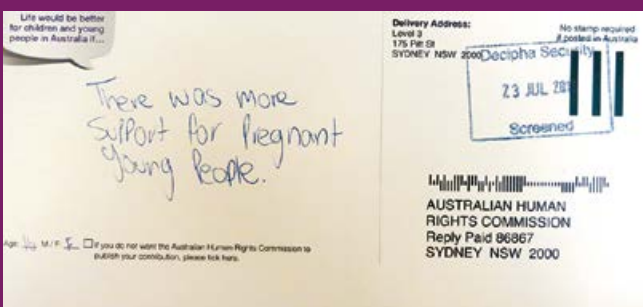 Life would be better
for children and young
people in Australia if...
There was more
Support for Pregnant
Young People.
Age: M / F
If you do not want the Australian Human Rights Commission to
publish your contribution, please tick here.
Delivery Address:
Level 3
175 Pitt St
SYDNEY NSW 2000
No stamp required
if posted in Australia
Decipha Security
23 JUL
Screened
AUSTRALIAN HUMAN
RIGHTS COMMISSION
Reply Paid 86867
SYDNEY NSW 2000